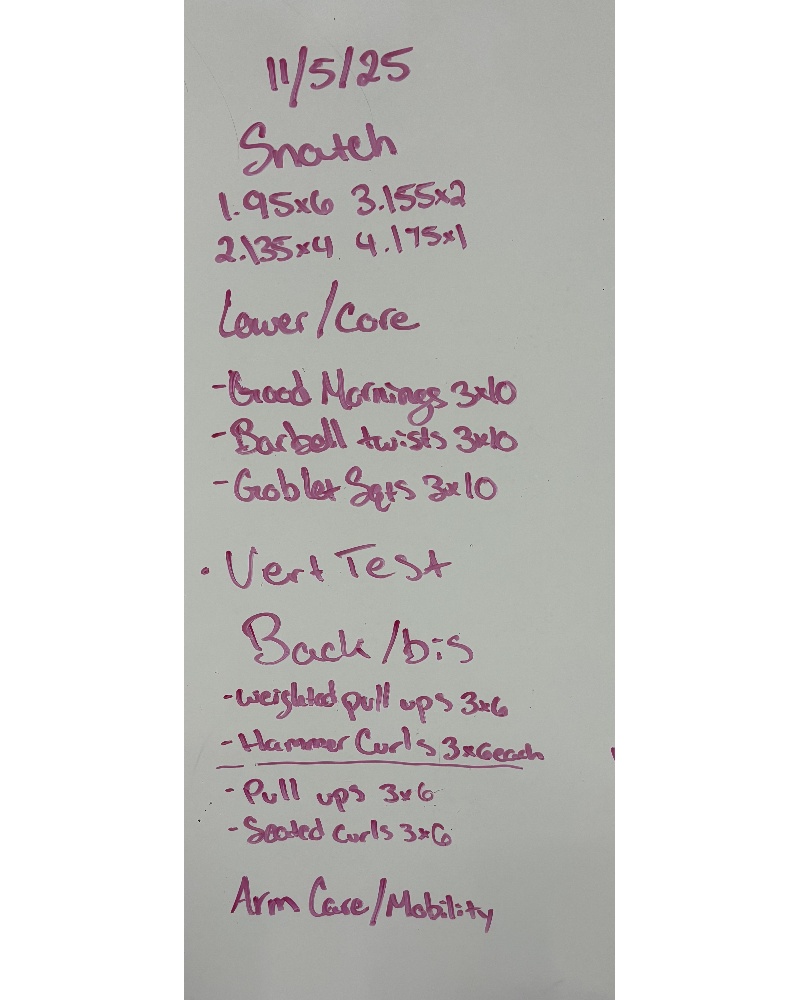 11/5/25
Snatch
1.95x6 3.155x2
2.135x4 4.175x1
Lower/Core
-Good Mornings 3x10
-Barbell twists 3x10
-Goblet Sqts 3x10
• Vert Test
Back/bis
-weighted pull ups 3x6
-Hammer Curls 3x6each
-Pull ups 3x6
-Seated curls 3x6
Arm Care/Mobility